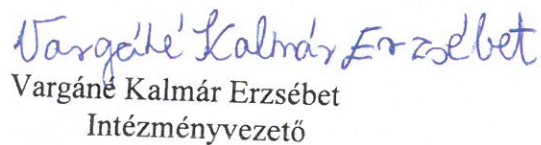 Vargáné Kalmár Erzsébet
Vargáné Kalmár Erzsébet
Intézményvezető